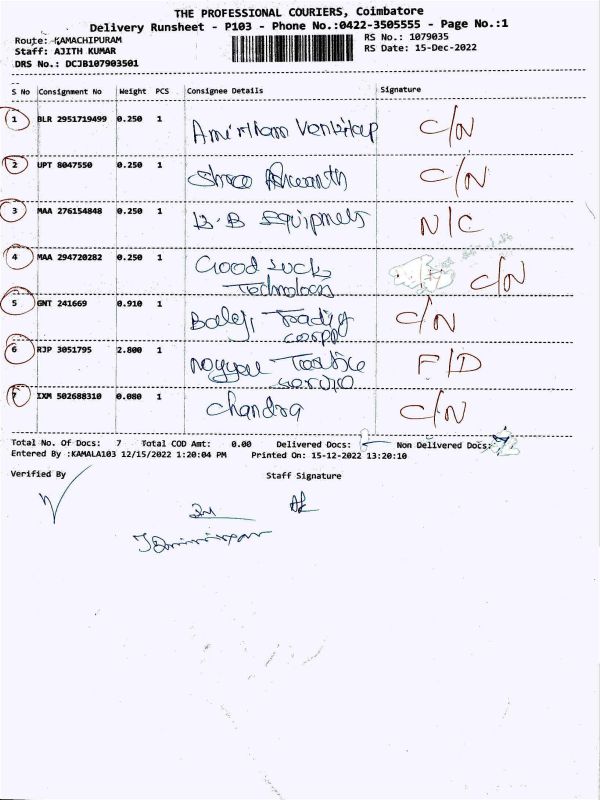 THE PROFESSIONAL COURIERS, Coimbatore
Delivery Runsheet - P103 - Phone No.:0422-3505555 - Page No.:1
Route: KAMACHIPURAM RS No.: 1079035
Staff: AJITH KUMAR RS Date: 15-Dec-2022
DRS No.: DCJB107903501
S No Consignment No Weight PCS Consignee Details Signature
1 BLR 2951719499 0.250 1 C/N
2 UPT 8047550 0.250 1 Shree Ashwanth C/N
3 MAA 276154848 0.250 1 B.B Equipmets N/C
4 MAA 294720282 0.250 1 Good luck C/N
Technologis
5 GNT 241669 0.910 1 Balaji Trading C/N
corpn
6 RJP 3051795 2.800 1 F/D
service
7 IXM 502688310 0.080 1 Chandra C/N
Total No. Of Docs: 7 Total COD Amt: 0.00 Delivered Docs: Non Delivered Docs: 7
Entered By :KAMALA103 12/15/2022 1:20:04 PM Printed On: 15-12-2022 13:20:10
Verified By Staff Signature